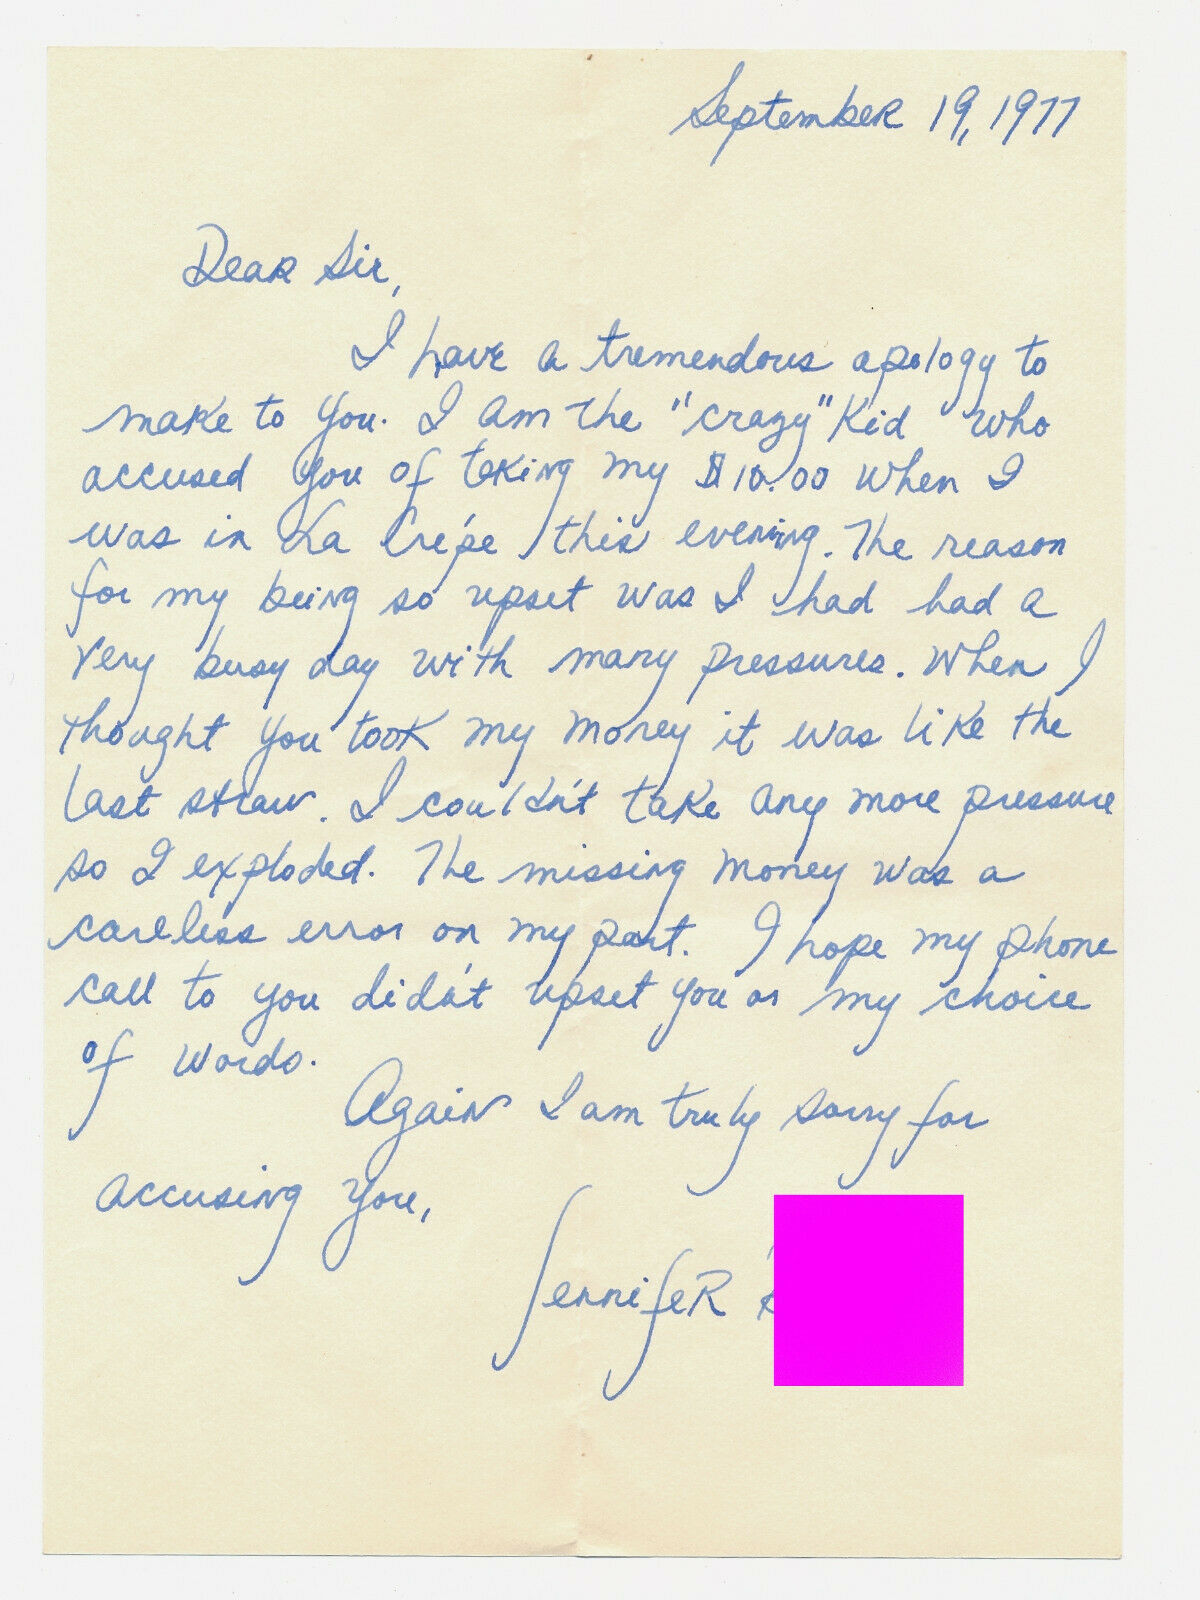 September 19, 1977
Dear Sir,
I have a tremendous apology to
make to you. I am the "crazy" kid who
accused you of taking my $10.00 when I
was in La Crépe this evening. The reason
for my being so upset was I had had a
very busy day with many pressures. When I
thought you took my money it was like the
last straw. I couldn't take any more pressure
so I exploded. The missing money was a
careless error on my part. I hope my phone
call to you didn't upset you or my choice
of words.
Again I am truly sorry for
accusing you,
Jennifer